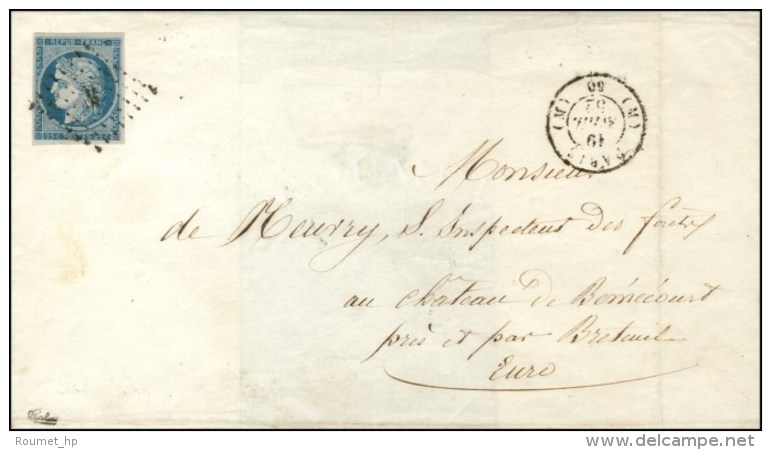 REPUB. FRANC.
PARIS
(M) (M)
19
60
Monsieur
de Heurry, S. Inspecteur des forêts
au château de Bémécourt
près et par Breteuil
Eure
Roumet_hp
delcampe.net